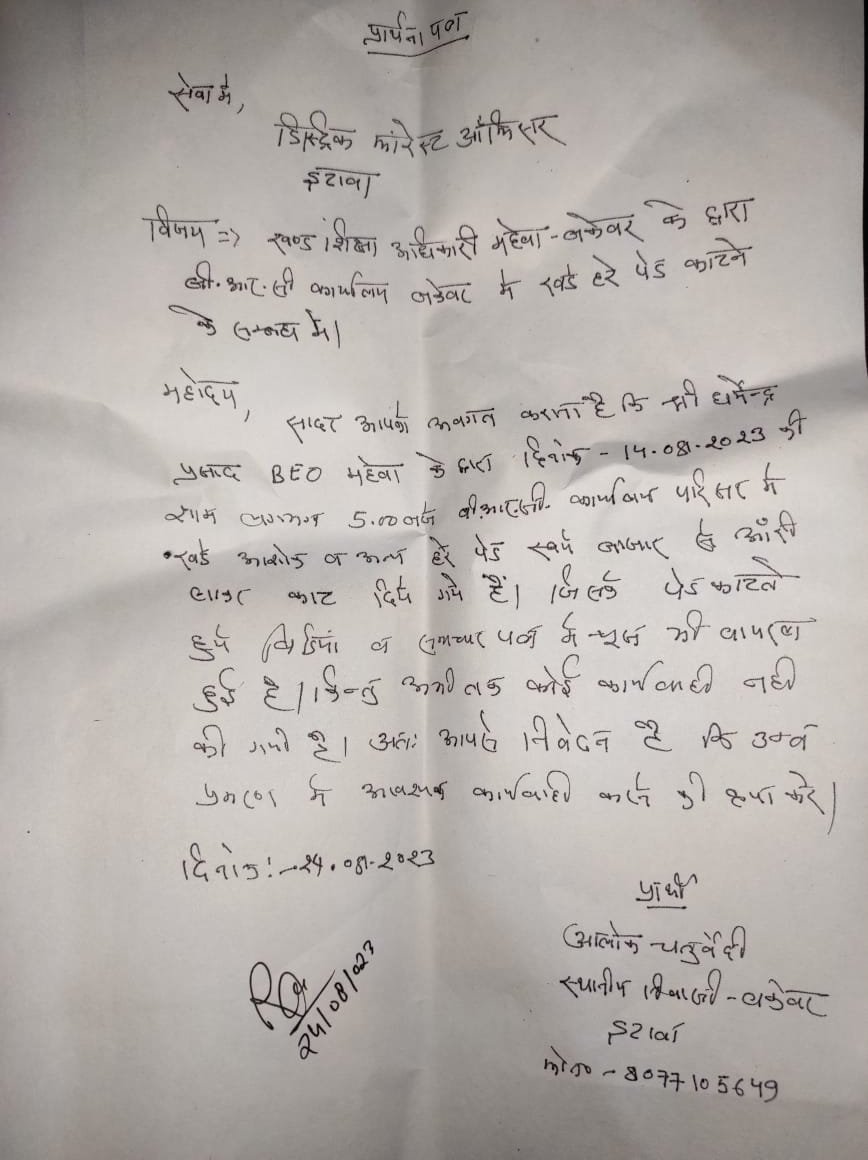 प्रार्थना पत्र
सेवा में,
डिस्ट्रिक फॉरेस्ट ऑफिसर
इटावा
विषय => खण्ड शिक्षा अधिकारी महेवा-बकेवर के द्वारा
बी.आर.सी कार्यालय बकेवर में खडे हरे पेड काटने
के सम्बन्ध में।
महोदय,
सादर आपको अवगत कराना है कि श्री धर्मेन्द्र
प्रसाद BEO महेवा के द्वारा दिनांक - 14.08.2023 की
शाम लगभग 5.00 बजे बी.आर.सी. कार्यालय परिसर में
खडे अशोक व अन्य हरे पेड स्वयं बाजार से आरी
लाकर काट दिये गये हैं। जिसके पेड काटते
हुये विडियो व समाचार पत्र में न्यूज भी वायरल
हुई है। किन्तु अभी तक कोई कार्यवाही नही
की गयी है। अतः आपसे निवेदन है कि उक्त
प्रकरण में आवश्यक कार्यवाही करने की कृपा करें।
दिनांक:- 24.08.2023
प्रार्थी
आलोक चतुर्वेदी
स्थानीय निवासी - बकेवर
इटावा
मो०न० - 8077105649
24/08/023